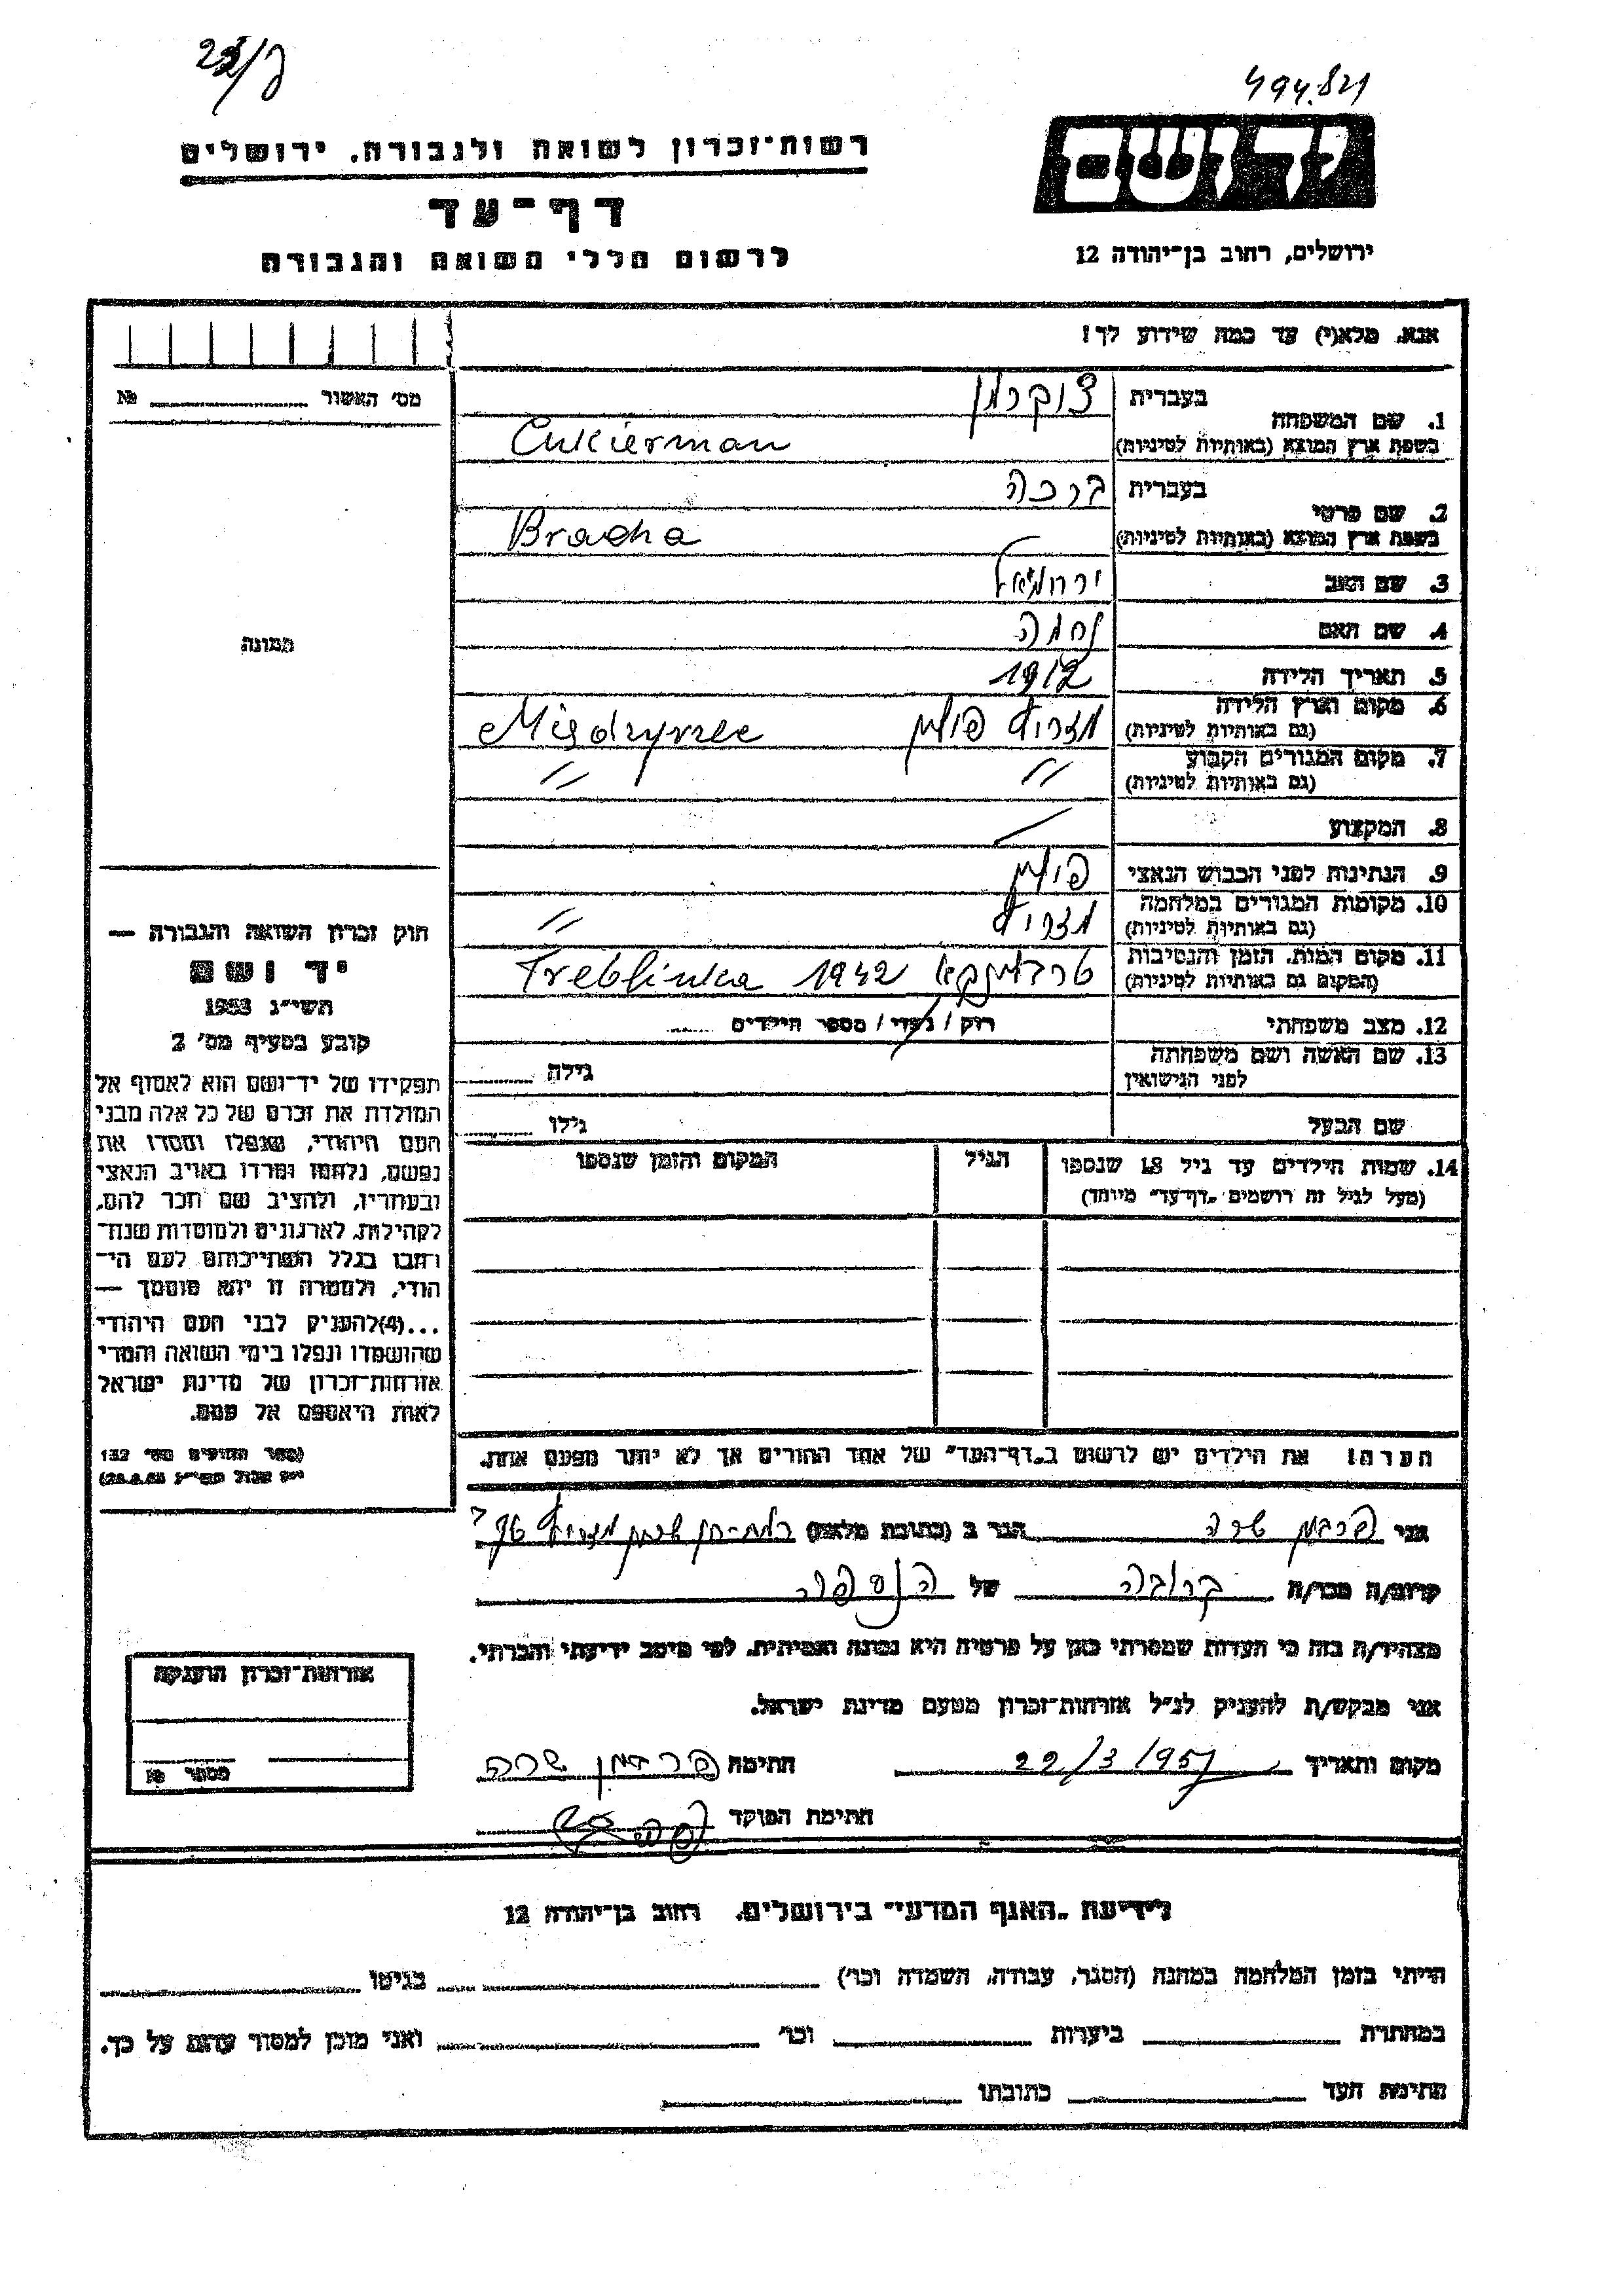 494.821
רשות־זכרון לשואה ולגבורה. ירושלים
דף־עד
לרשום חללי השואה והגבורה
ידושם
ירושלים, רחוב בן־יהודה 12
אנא, מלא(י) עד כמה שידוע לך!
מס' האשור № 
1. שם המשפחה
בעברית צוקרמן
בשפת ארץ המוצא (באותיות לטיניות) Cukierman
2. שם פרטי
בעברית ברכה
בשפת ארץ המוצא (באותיות לטיניות) Bracha
3. שם האב ירחמיאל
4. שם האם נחמה
5. תאריך הלידה 1912
6. מקום וארץ הלידה
(גם באותיות לטיניות) מזריץ פולין Miedzyrzec
7. מקום המגורים הקבוע
(גם באותיות לטיניות) " "
8. המקצוע —
9. הנתינות לפני הכבוש הנאצי פולין
10. מקומות המגורים במלחמה
(גם באותיות לטיניות) מזריץ "
11. מקום המות, הזמן והנסיבות
(המקום גם באותיות לטיניות) טרבלינקא 1942 Treblinka
12. מצב משפחתי רוק / נשוי / מספר הילדים
13. שם האשה ושם משפחתה
לפני הנישואין גילה
שם הבעל גילו
14. שמות הילדים עד גיל 18 שנספו הגיל המקום והזמן שנספו
(מעל לגיל זה רושמים "דף־עד" מיוחד)
הערה! את הילדים יש לרשום ב"דף־העד" של אחד ההורים אך לא יותר מפעם אחת.
תמונה
חוק זכרון השואה והגבורה —
יד ושם
תשי"ג 1953
קובע בסעיף מס' 2
תפקידו של יד־ושם הוא לאסוף אל
המולדת את זכרם של כל אלה מבני
העם היהודי, שנפלו ומסרו את
נפשם, נלחמו ומרדו באויב הנאצי
ובעוזריו, ולהציב שם וזכר להם,
לקהילות, לארגונים ולמוסדות שנח־
רבו בגלל השתייכותם לעם הי־
הודי, ולמטרה זו יהא מוסמך —
...(4)להעניק לבני העם היהודי
שהושמדו ונפלו בימי השואה והמרי
אזרחות־זכרון של מדינת ישראל
לאות היאספם אל עמם.
(ספר החוקים מס' 132
אני שרה הגר ב (כתובת מלאה) רמת-גן
קרוב/ה מכר/ה קרובה של הנספה
מצהיר/ה בזה כי העדות שמסרתי כאן על פרטיה היא נכונה ואמיתית, לפי מיטב ידיעתי והכרתי.
אני מבקש/ת להעניק לנ"ל אזרחות־זכרון מטעם מדינת ישראל.
מקום ותאריך 22/3 1957 חתימה שרה
חתימת הפוקד
אזרחות־זכרון הוענקה
מספר №
לידיעת "האגף המדעי" בירושלים, רחוב בן־יהודה 12
הייתי בזמן המלחמה במחנה (הסגר, עבודה, השמדה וכו') בגיטו
במחתרת ביערות וכו' ואני מוכן למסור עדות על כך.
חתימת העד כתובתו